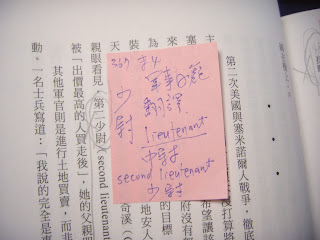 第二次美國與塞米諾爾人戰爭，徹底
塞
來
為
裝
天
打算將
希望讓
府沒有
的目標
地安人
奇溪（O
親眼看見，第二少尉（second lieutenant
被「出價最高的人買走後」她的父親
其他軍官則是進行土地買賣，而非
動。一名士兵寫道：「我說的完全是事
367 末4
軍事
翻譯
lieutenant
中尉
second lieutenant
少尉
少尉